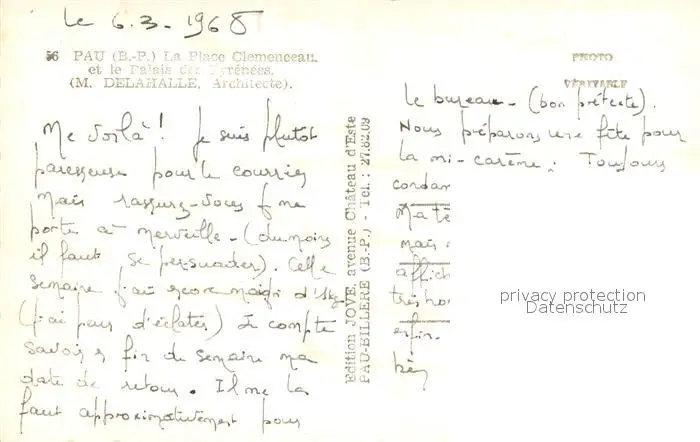 le 6.3.1968
56 PAU (B.-P.) La Place Clemenceau.
et le Palais des Pyrénées.
(M. DELAHALLE, Architecte).
Me voilà ! Je suis plutôt
paresseuse pour le courrier
Mais rassurez-vous je me
porte à merveille - (du moins
il faut se persuader). Cette
semaine j'ai encore maigri d'1kg
(j'ai peur d'éclater) Je compte
savoir en fin de semaine ma
date de retour. Il me la
faut approximativement pour
Edition JOVE, avenue Château d'Este
PAU-BILLERE (B.-P.) - Tél. : 27.82.09
PHOTO
VÉRITABLE
le bureau - (bon prétexte).
Nous préparons une fête pour
la mi-carême. Toujours
cordar
Ma tê
mais
affich
très ho
enfin.
privacy protection
Datenschutz